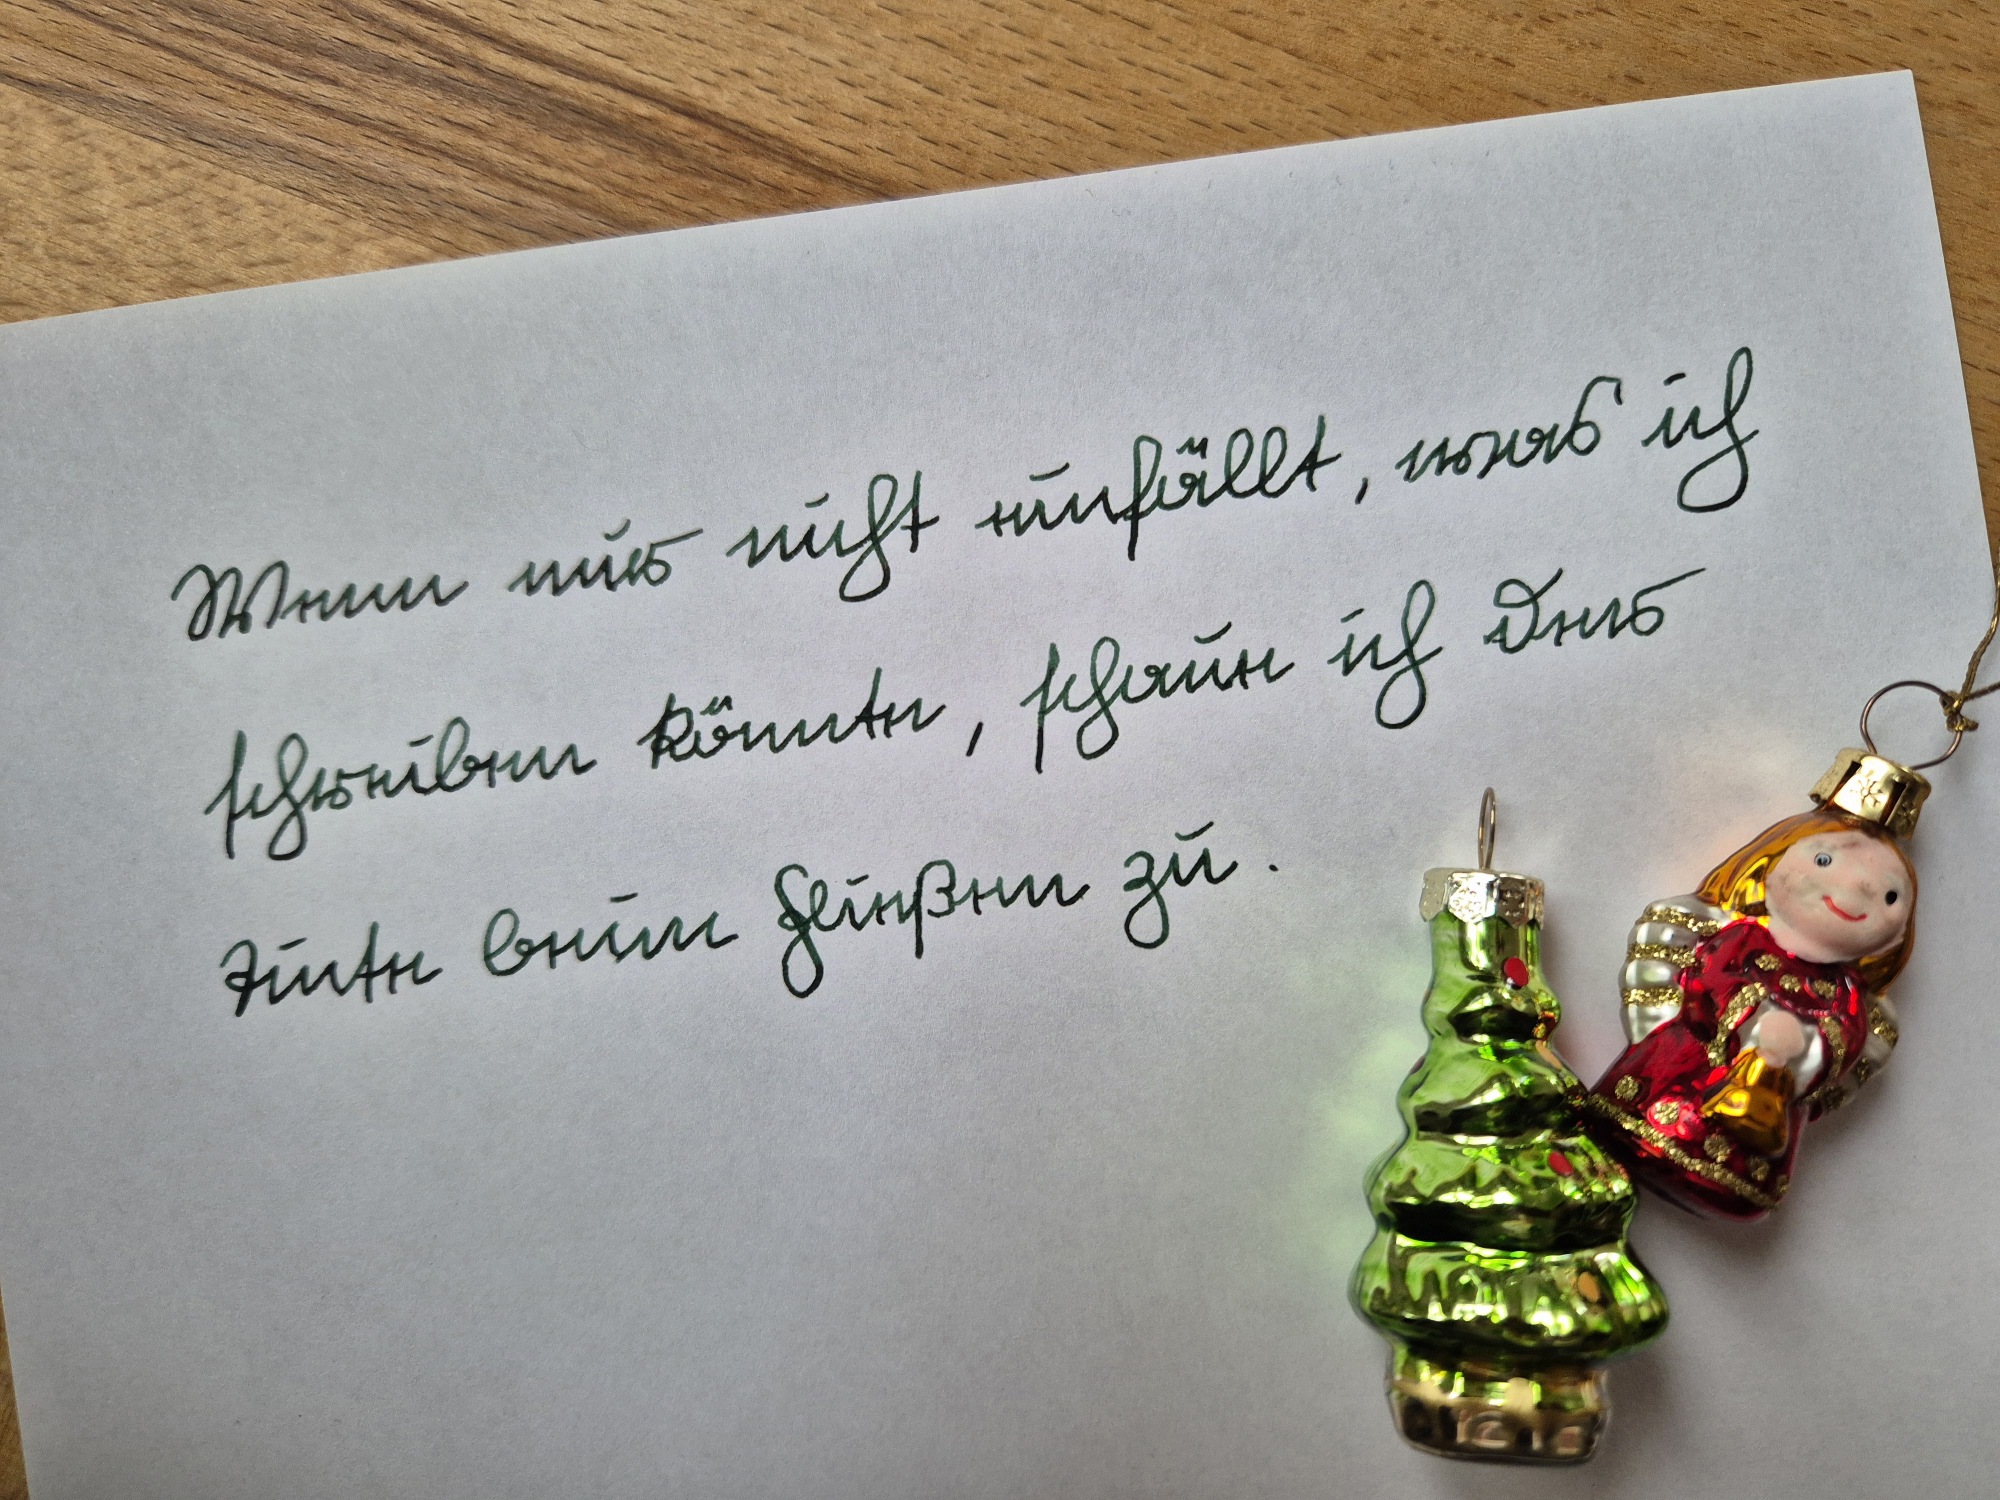 Wenn mir nicht einfällt, was ich
schreiben könnte, schaue ich der
Tinte beim Fließen zu.